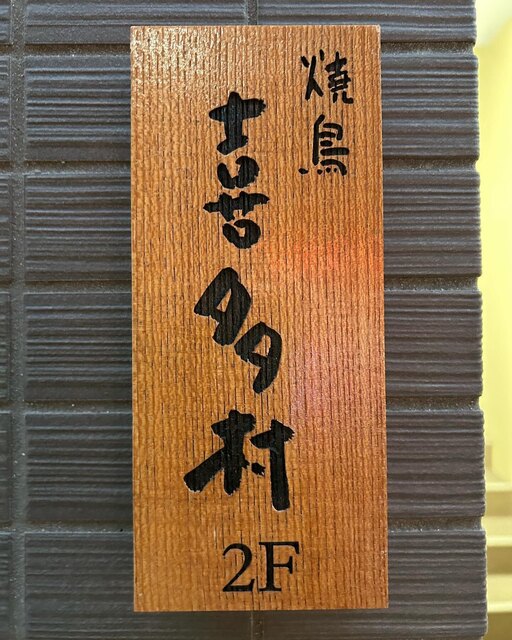 焼鳥
喜多村
2F